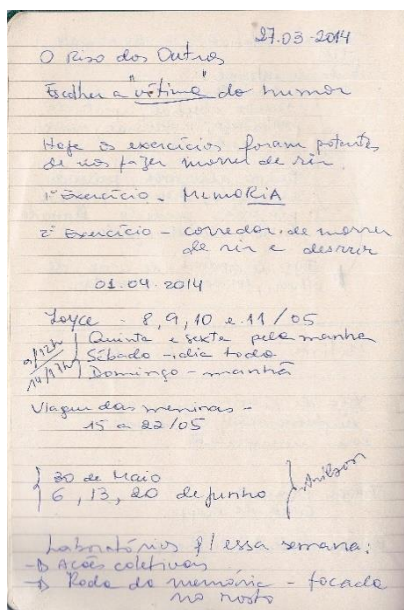 27.03-2014
O Riso dos Outros
Escolher a "vítima" do humor
Hoje os exercícios foram potentes
de nos fazer morrer de rir.
1º Exercício - MemóRiA
2º Exercício - corredor de morrer
de rir e desrir
01.04.2014
Loyce - 8, 9, 10 e 11/05
9/12h Quinta e sexta pela manhã
14/17h Sábado - dia todo
Domingo - manhã
Viagem das meninas -
15 a 22/05
30 de Maio
6, 13, 20 de junho
Laboratórios p/ essa semana:
Ações coletivas
Roda da memória - focada
no rosto